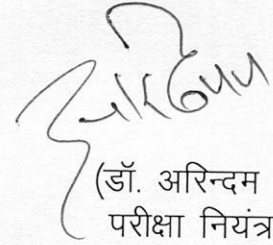 (डॉ. अरिन्दम
परीक्षा नियंत्र